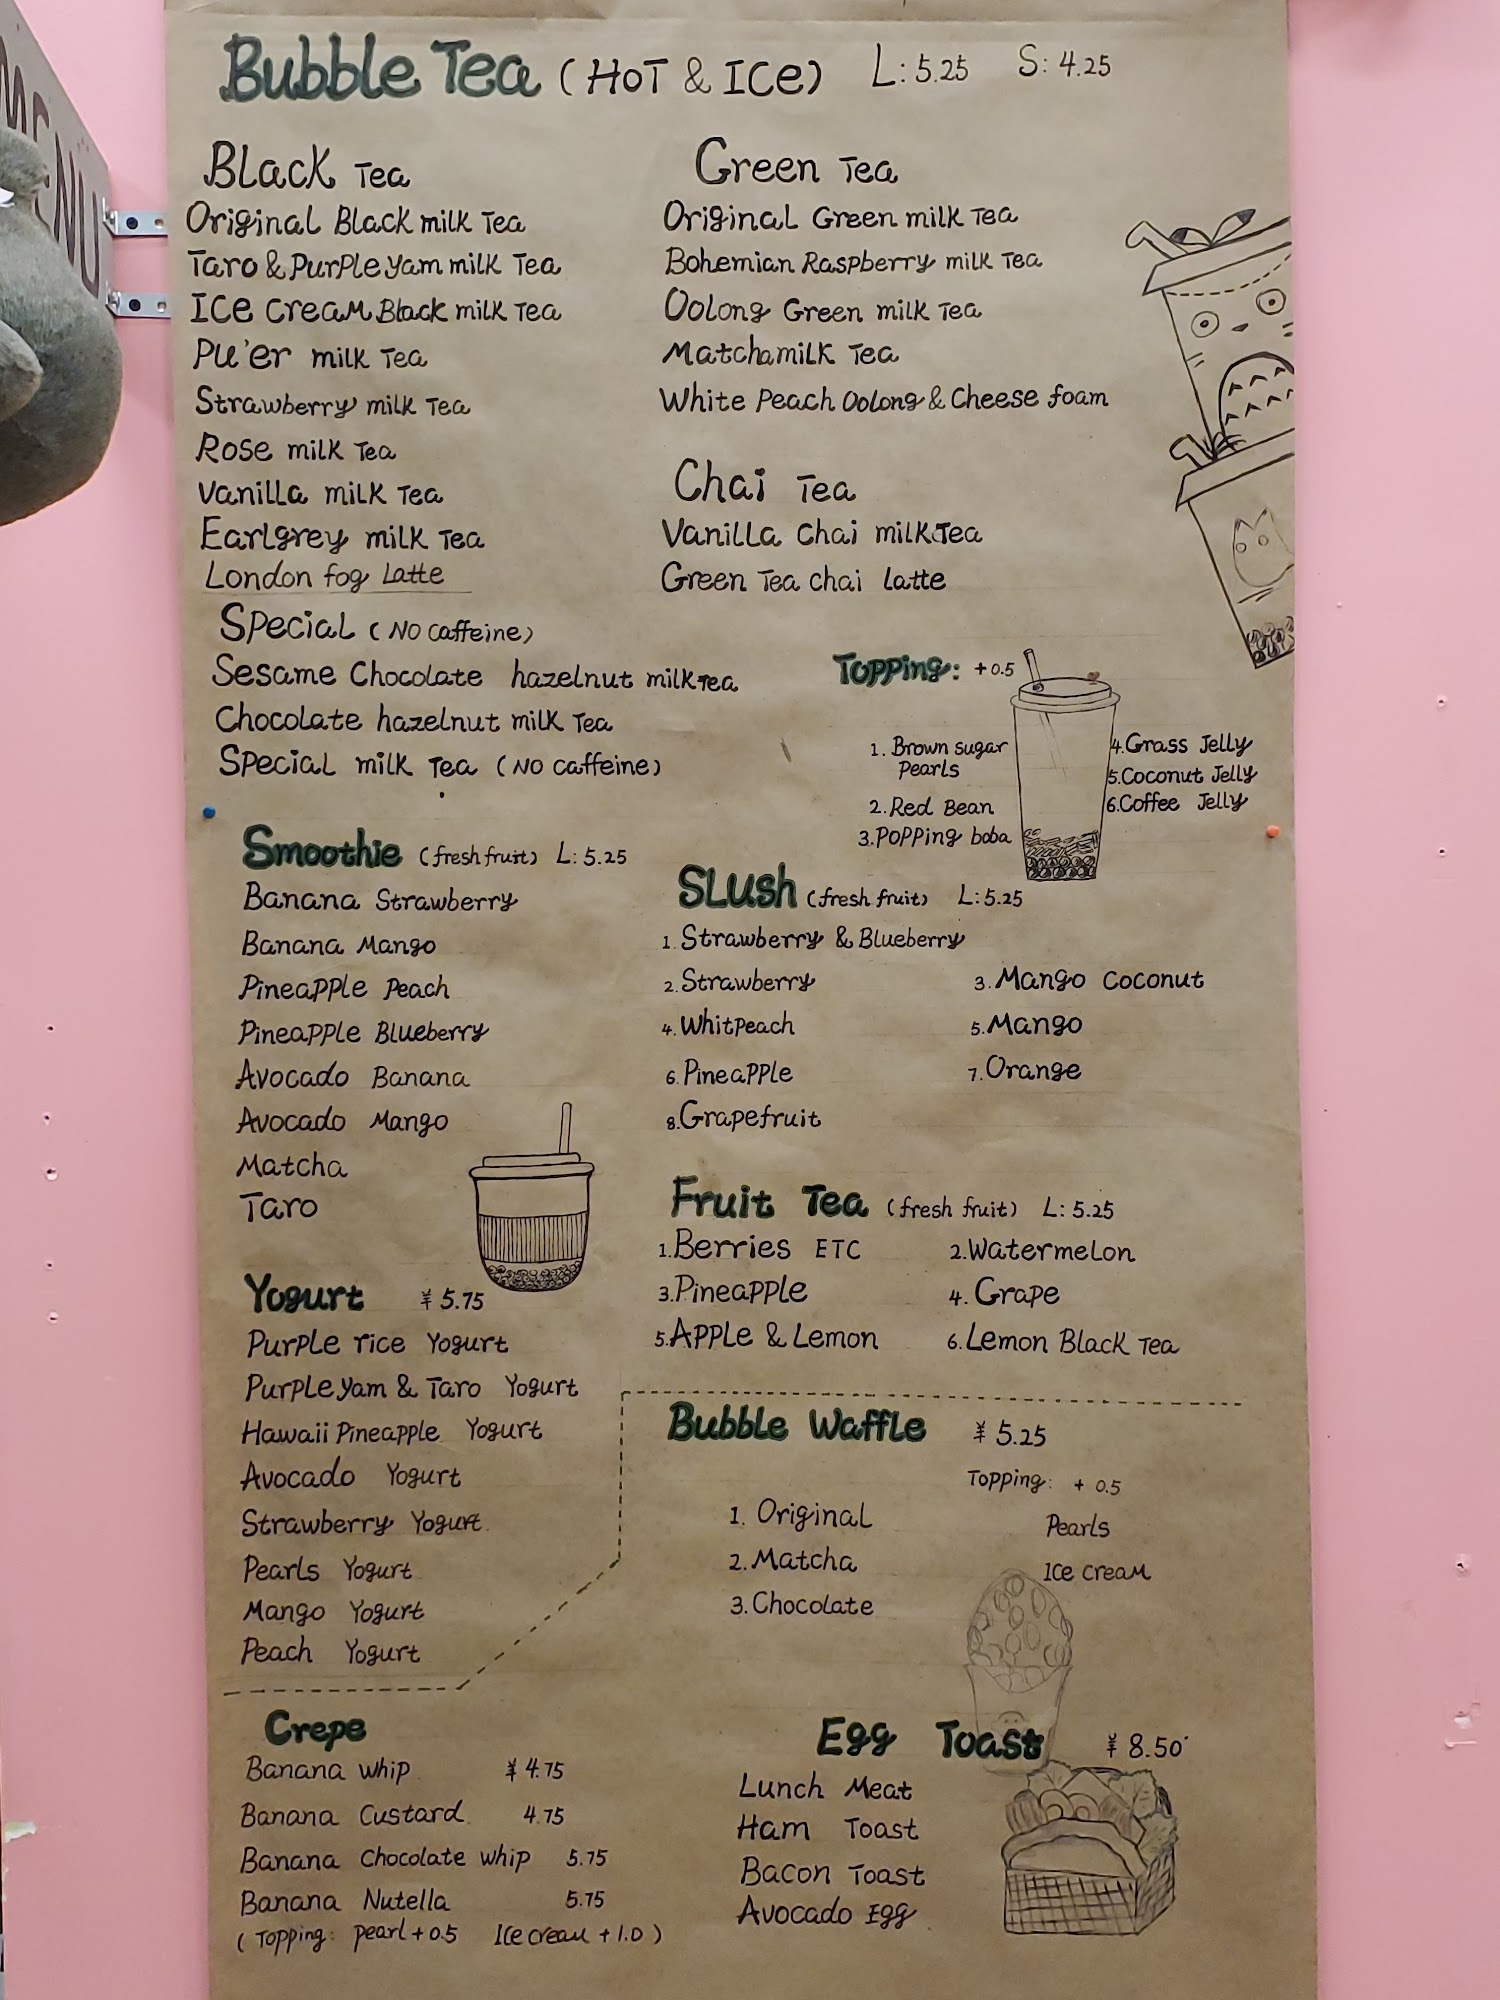 MENU
Bubble Tea (HOT & ICE) L: 5.25 S: 4.25
Black Tea
Original Black milk Tea
Taro & Purple yam milk Tea
Ice cream Black milk Tea
Pu'er milk Tea
Strawberry milk Tea
Rose milk Tea
Vanilla milk Tea
Earlgrey milk Tea
London fog Latte
Green Tea
Original Green milk Tea
Bohemian Raspberry milk Tea
Oolong Green milk Tea
Matcha milk Tea
White Peach Oolong & Cheese foam
Chai Tea
Vanilla Chai milk Tea
Green Tea chai latte
Special (NO caffeine)
Sesame Chocolate hazelnut milk Tea
Chocolate hazelnut milk Tea
Special milk Tea (NO caffeine)
Topping: +0.5
1. Brown sugar
Pearls
2. Red Bean
3. Popping boba
4. Grass Jelly
5. Coconut Jelly
6. Coffee Jelly
Smoothie (fresh fruit) L: 5.25
Banana Strawberry
Banana Mango
Pineapple Peach
Pineapple Blueberry
Avocado Banana
Avocado Mango
Matcha
Taro
Slush (fresh fruit) L: 5.25
1. Strawberry & Blueberry
2. Strawberry 3. Mango Coconut
4. Whitpeach 5. Mango
6. Pineapple 7. Orange
8. Grapefruit
Fruit Tea (fresh fruit) L: 5.25
1. Berries ETC 2. Watermelon
3. Pineapple 4. Grape
5. Apple & Lemon 6. Lemon Black Tea
Yogurt ¥ 5.75
Purple rice Yogurt
Purple yam & Taro Yogurt
Hawaii Pineapple Yogurt
Avocado Yogurt
Strawberry Yogurt
Pearls Yogurt
Mango Yogurt
Peach Yogurt
Bubble Waffle ¥ 5.25
Topping: + 0.5
Pearls
Ice cream
1. Original
2. Matcha
3. Chocolate
Crepe
Banana whip ¥ 4.75
Banana Custard 4.75
Banana Chocolate whip 5.75
Banana Nutella 5.75
(Topping: pearl + 0.5 Ice cream + 1.0)
Egg Toast ¥ 8.50
Lunch Meat
Ham Toast
Bacon Toast
Avocado Egg